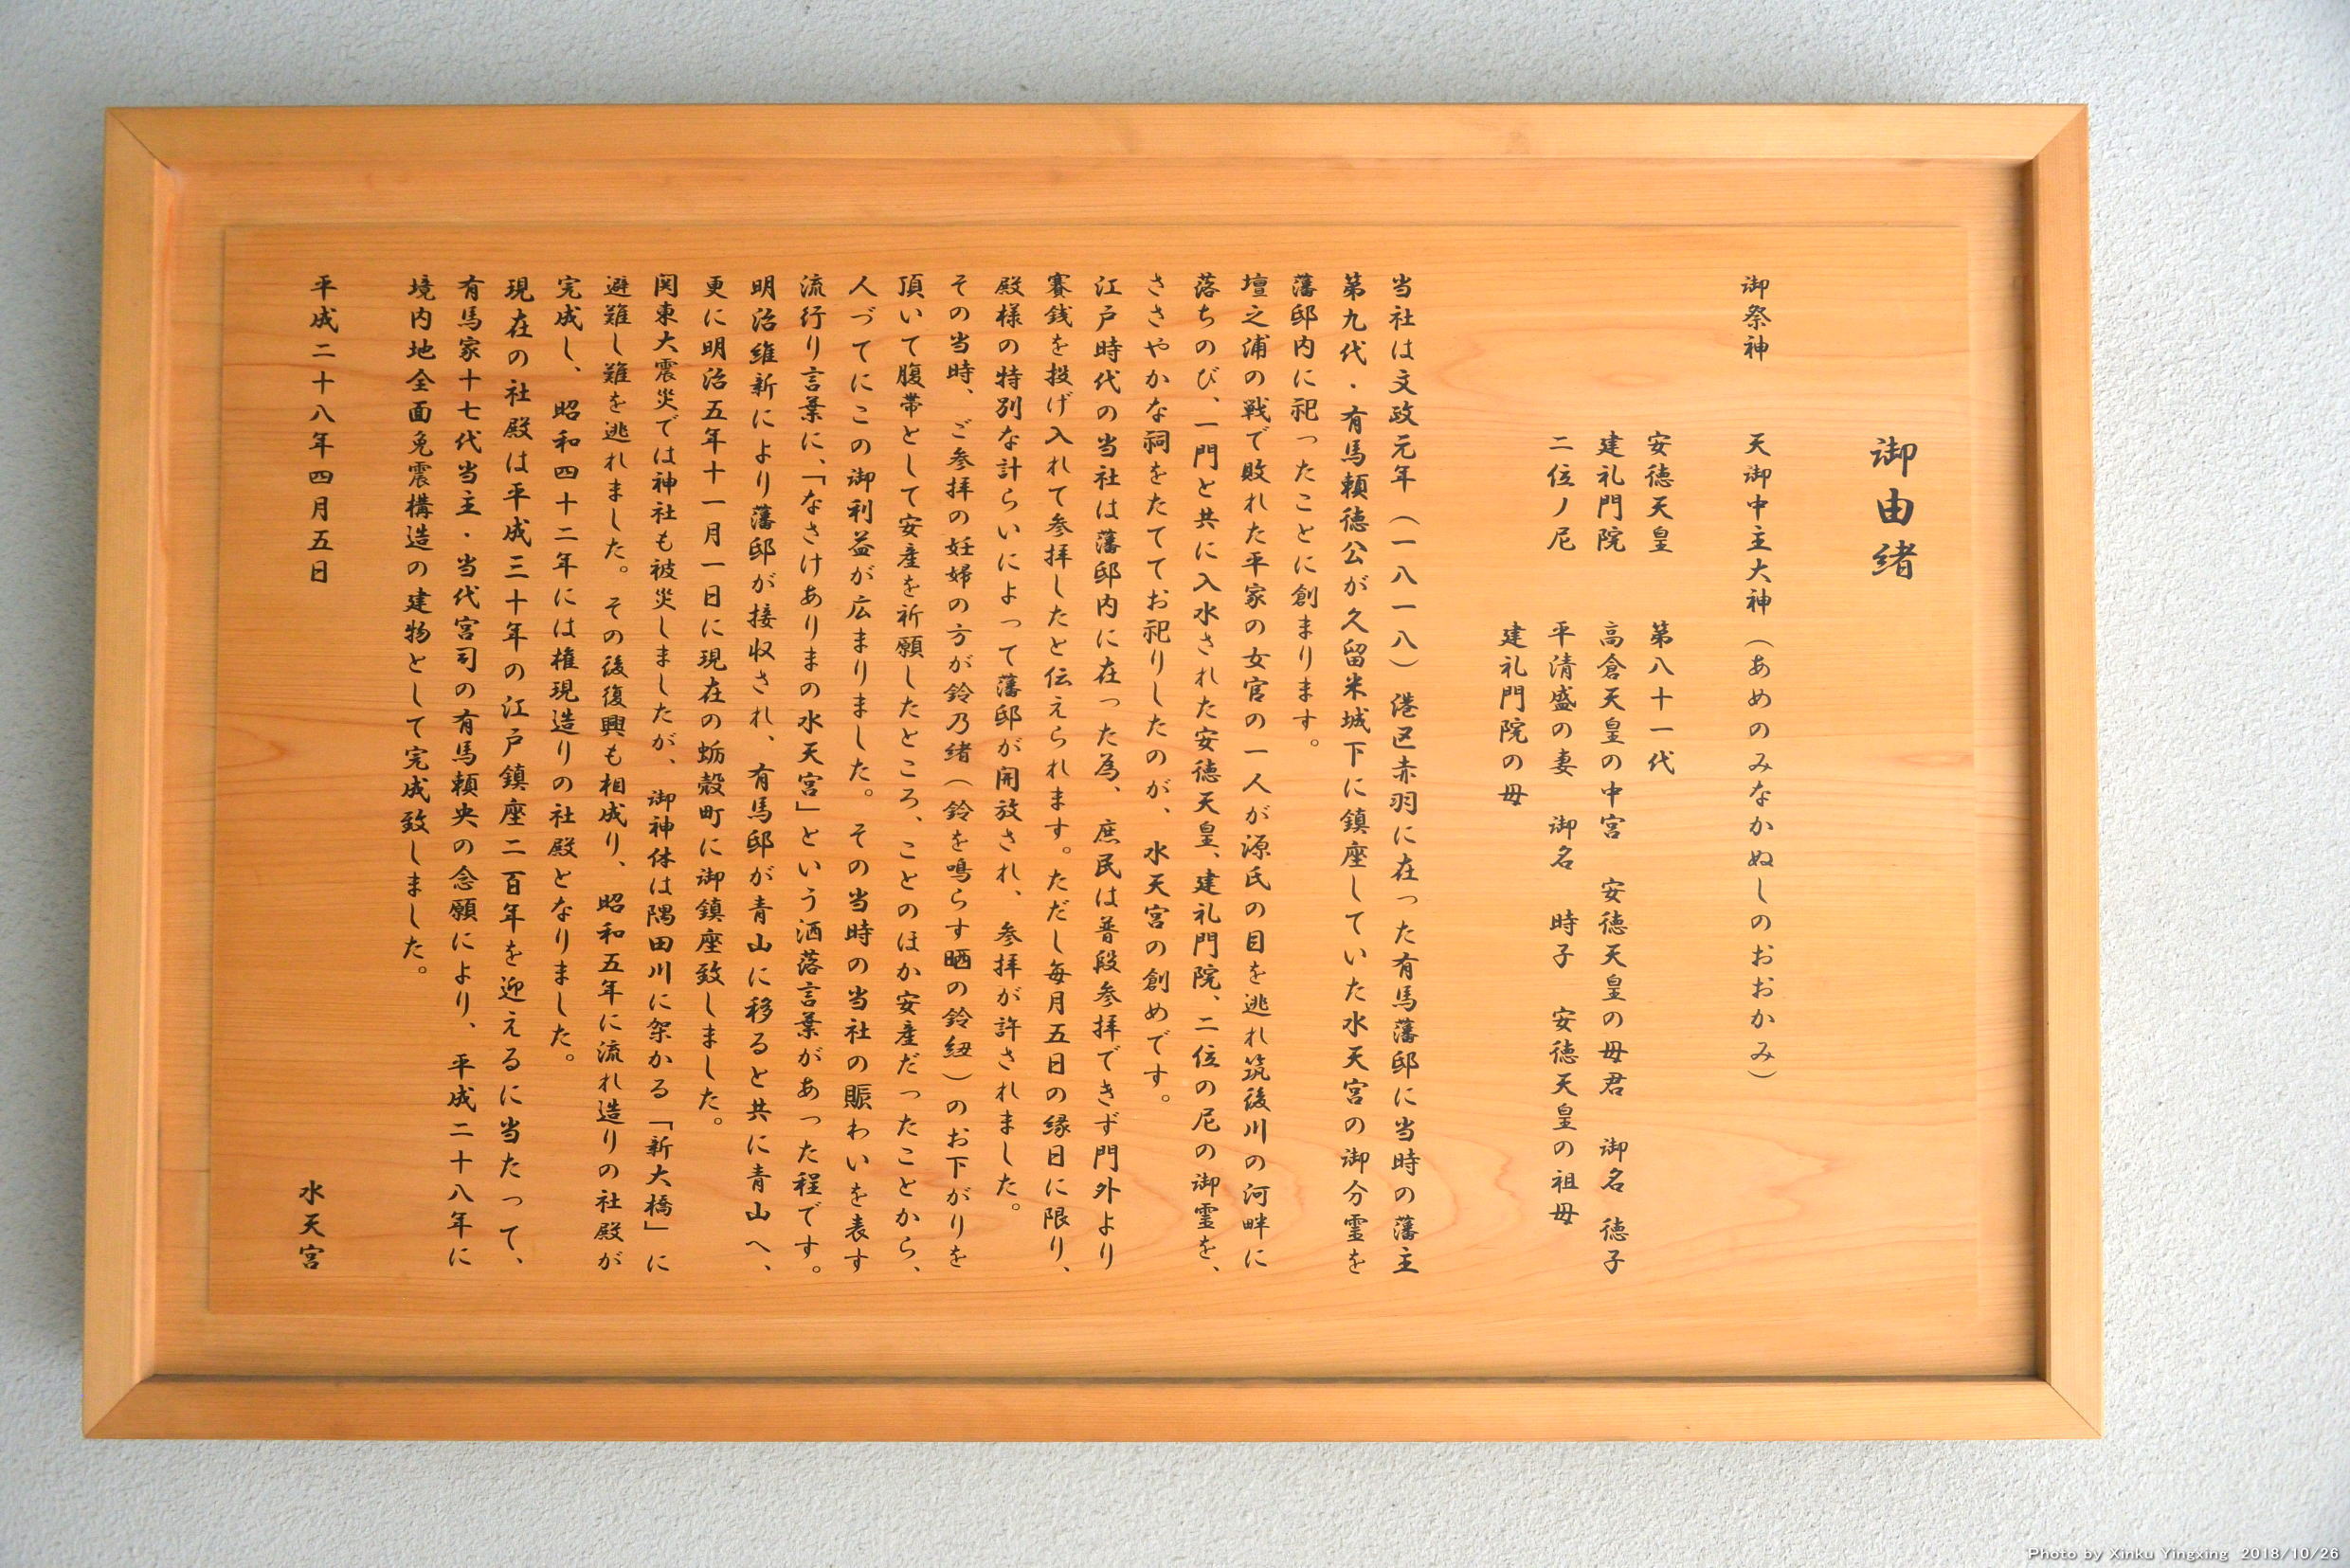 御由緒
御祭神　天御中主大神（あめのみなかぬしのおおかみ）
安徳天皇　第八十一代
建礼門院　高倉天皇の中宮　安徳天皇の母君　御名　徳子
二位ノ尼　平清盛の妻　御名　時子　安徳天皇の祖母
建礼門院の母
当社は文政元年（一八一八）港区赤羽に在った有馬藩邸に当時の藩主
第九代・有馬頼徳公が久留米城下に鎮座していた水天宮の御分霊を
藩邸内に祀ったことに創まります。
壇之浦の戦で敗れた平家の女官の一人が源氏の目を逃れ筑後川の河畔に
落ちのび、一門と共に入水された安徳天皇、建礼門院、二位の尼の御霊を、
ささやかな祠をたててお祀りしたのが、水天宮の創めです。
江戸時代の当社は藩邸内に在った為、庶民は普段参拝できず門外より
賽銭を投げ入れて参拝したと伝えられます。ただし毎月五日の縁日に限り、
殿様の特別な計らいによって藩邸が開放され、参拝が許されました。
その当時、ご参拝の妊婦の方が鈴乃緒（鈴を鳴らす晒の鈴紐）のお下がりを
頂いて腹帯として安産を祈願したところ、ことのほか安産だったことから、
人づてにこの御利益が広まりました。その当時の当社の賑わいを表す
流行り言葉に、「なさけありまの水天宮」という洒落言葉があった程です。
明治維新により藩邸が接収され、有馬邸が青山に移ると共に青山へ、
更に明治五年十一月一日に現在の蛎殻町に御鎮座致しました。
関東大震災では神社も被災しましたが、御神体は隅田川に架かる「新大橋」に
避難し難を逃れました。その後復興も相成り、昭和五年に流れ造りの社殿が
完成し、昭和四十二年には権現造りの社殿となりました。
現在の社殿は平成三十年の江戸鎮座二百年を迎えるに当たって、
有馬家十七代当主・当代宮司の有馬頼央の念願により、平成二十八年に
境内地全面免震構造の建物として完成致しました。
平成二十八年四月五日
水天宮
Photo by Xinku Yingxing 2018/10/26